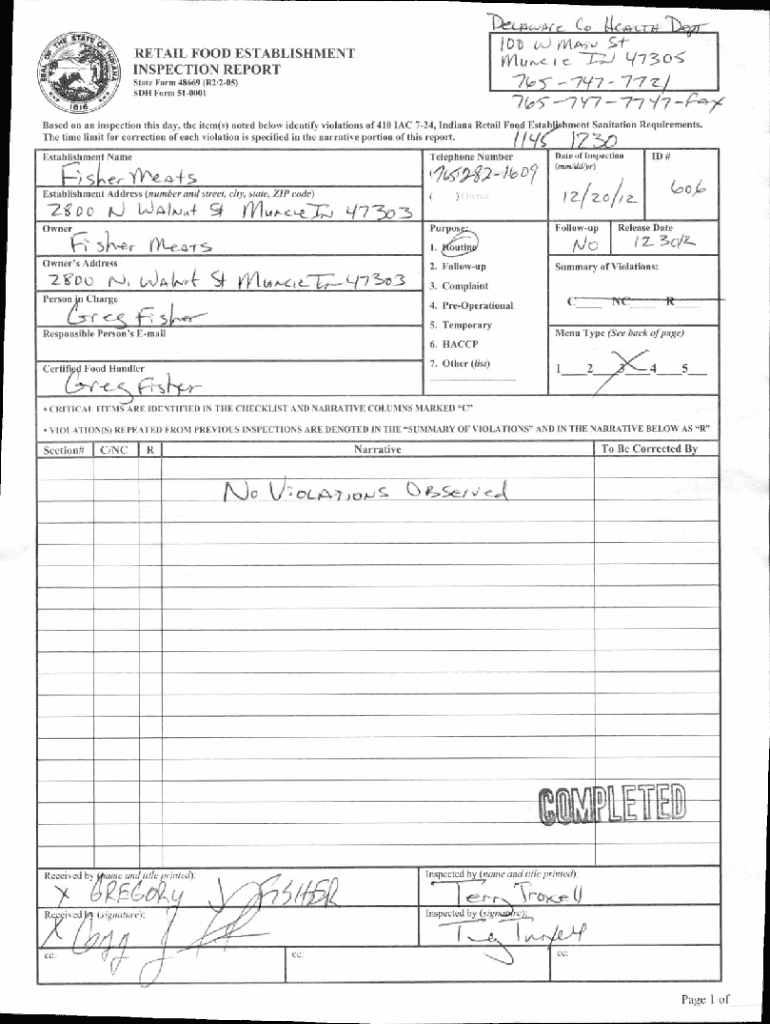 DELAWARE Co HEALTH Dept
100 W MAIN St
MUNCIE IN 47305
765-747-7721
765-747-7747-Fax
SEAL OF THE STATE OF INDIANA
1816
RETAIL FOOD ESTABLISHMENT
INSPECTION REPORT
State Form 48669 (R2/2-05)
SDH Form 51-0001
Based on an inspection this day, the item(s) noted below identify violations of 410 IAC 7-24, Indiana Retail Food Establishment Sanitation Requirements.
The time limit for correction of each violation is specified in the narrative portion of this report.
1145 1230
Establishment Name
Fisher Meats
Telephone Number
(765 282-1609
( ) Owner
Date of Inspection
(mm/dd/yr)
12/20/12
ID #
606
Establishment Address (number and street, city, state, ZIP code)
2800 N WALNUT St MUNCIE IN 47303
Owner
Fisher MEATS
Purpose:
1. Routine
2. Follow-up
3. Complaint
4. Pre-Operational
5. Temporary
6. HACCP
7. Other (list)
Follow-up
NO
Release Date
12 30/2
Owner's Address
2800 N. WALNUT St MUNCIE IN 47303
Summary of Violations:
C____ NC____ R____
Person in Charge
Greg Fisher
Responsible Person's E-mail
Menu Type (See back of page)
1___ 2___ 3___ 4___ 5___
X
Certified Food Handler
Greg Fisher
• CRITICAL ITEMS ARE IDENTIFIED IN THE CHECKLIST AND NARRATIVE COLUMNS MARKED “C”
• VIOLATION(S) REPEATED FROM PREVIOUS INSPECTIONS ARE DENOTED IN THE “SUMMARY OF VIOLATIONS” AND IN THE NARRATIVE BELOW AS “R”
Section# C/NC R Narrative To Be Corrected By
No VIOLATIONS OBSERVED
COMPLETED
Received by (name and title printed):
X GREGORY J FISHER
Inspected by (name and title printed):
Terry Troxell
Received by (signature):
X
Inspected by (signature):
cc:
cc:
cc:
Page 1 of